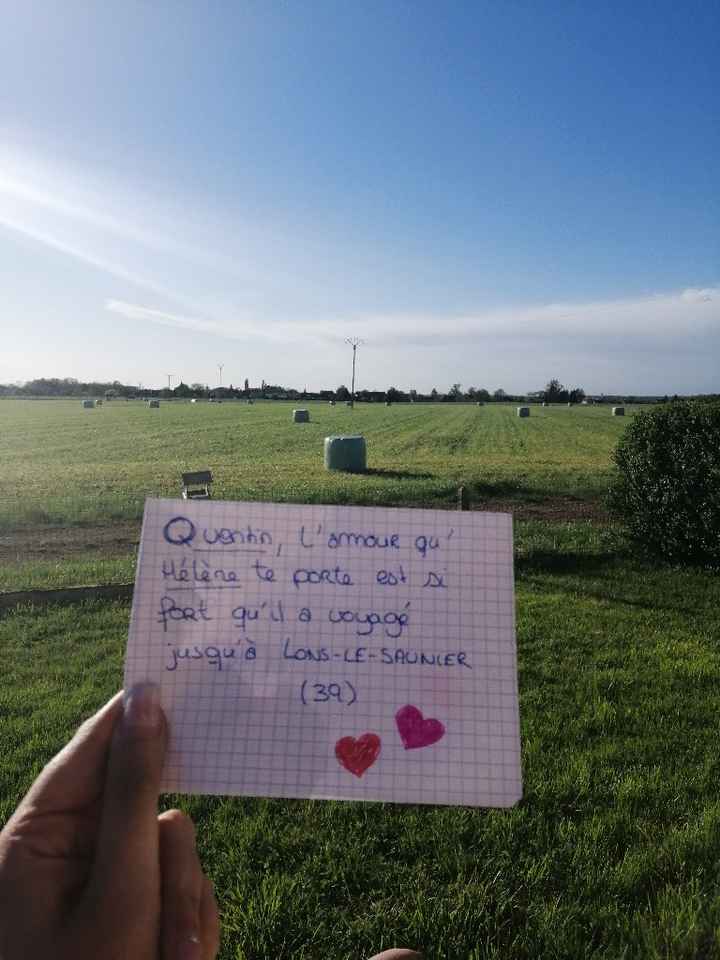 Quentin, L'amour qu'
Hélène te porte est si
fort qu'il a voyagé
jusqu'à LONS-LE-SAUNIER
(39)